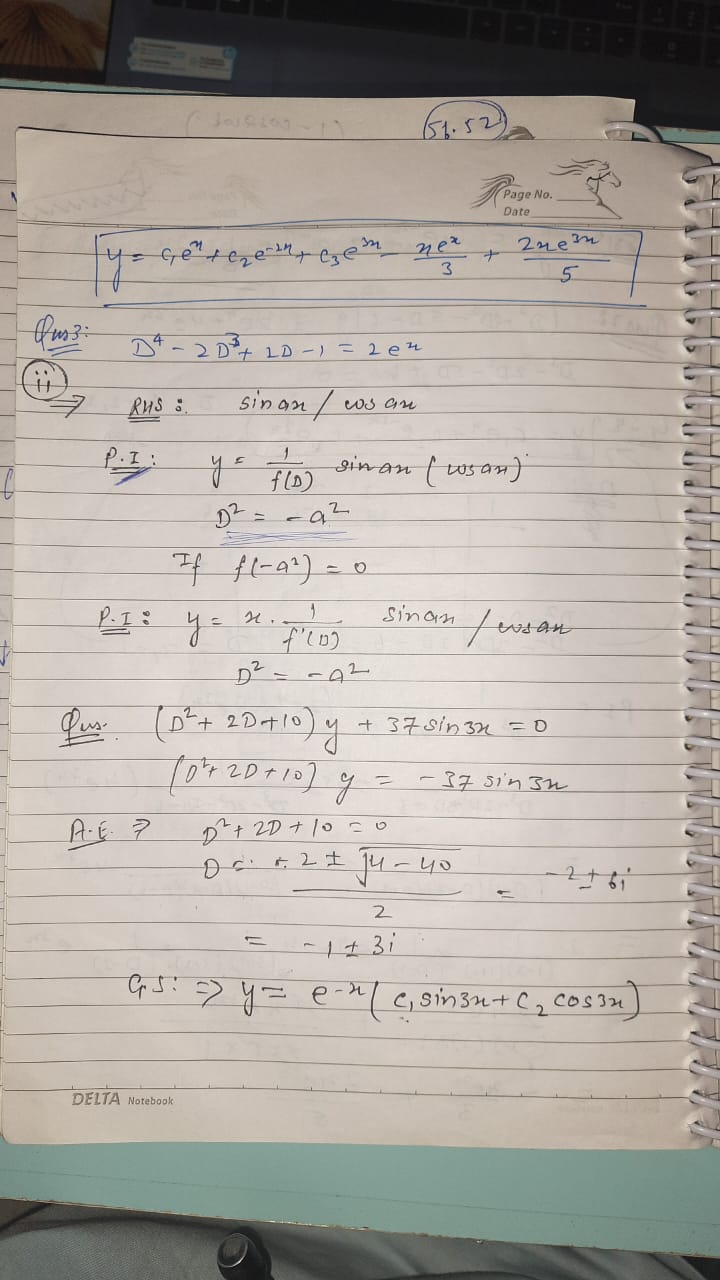 51.52
Page No.
Date
y = c₁eˣ + c₂e⁻²ˣ + c₃e³ˣ - xeˣ/3 + 2xe³ˣ/5
Qus3: D⁴ - 2D³ + 2D - 1 = 2eˣ
ii
⇒ RHS : sin ax / cos ax
P.I : y = 1/f(D) sin ax (cos ax)
D² = -a²
If f(-a²) = 0
P.I : y = x . 1/f'(D) sin ax / cos ax
D² = -a²
Qus. (D² + 2D + 10) y + 37 sin 3x = 0
(D² + 2D + 10) y = -37 sin 3x
A.E. ⇒ D² + 2D + 10 = 0
D = - 2 ± √4 - 40 / 2 = -2 ± 6i
= -1 ± 3i
G.S: ⇒ y = e⁻ˣ ( c₁ sin3x + c₂ cos3x )
DELTA Notebook